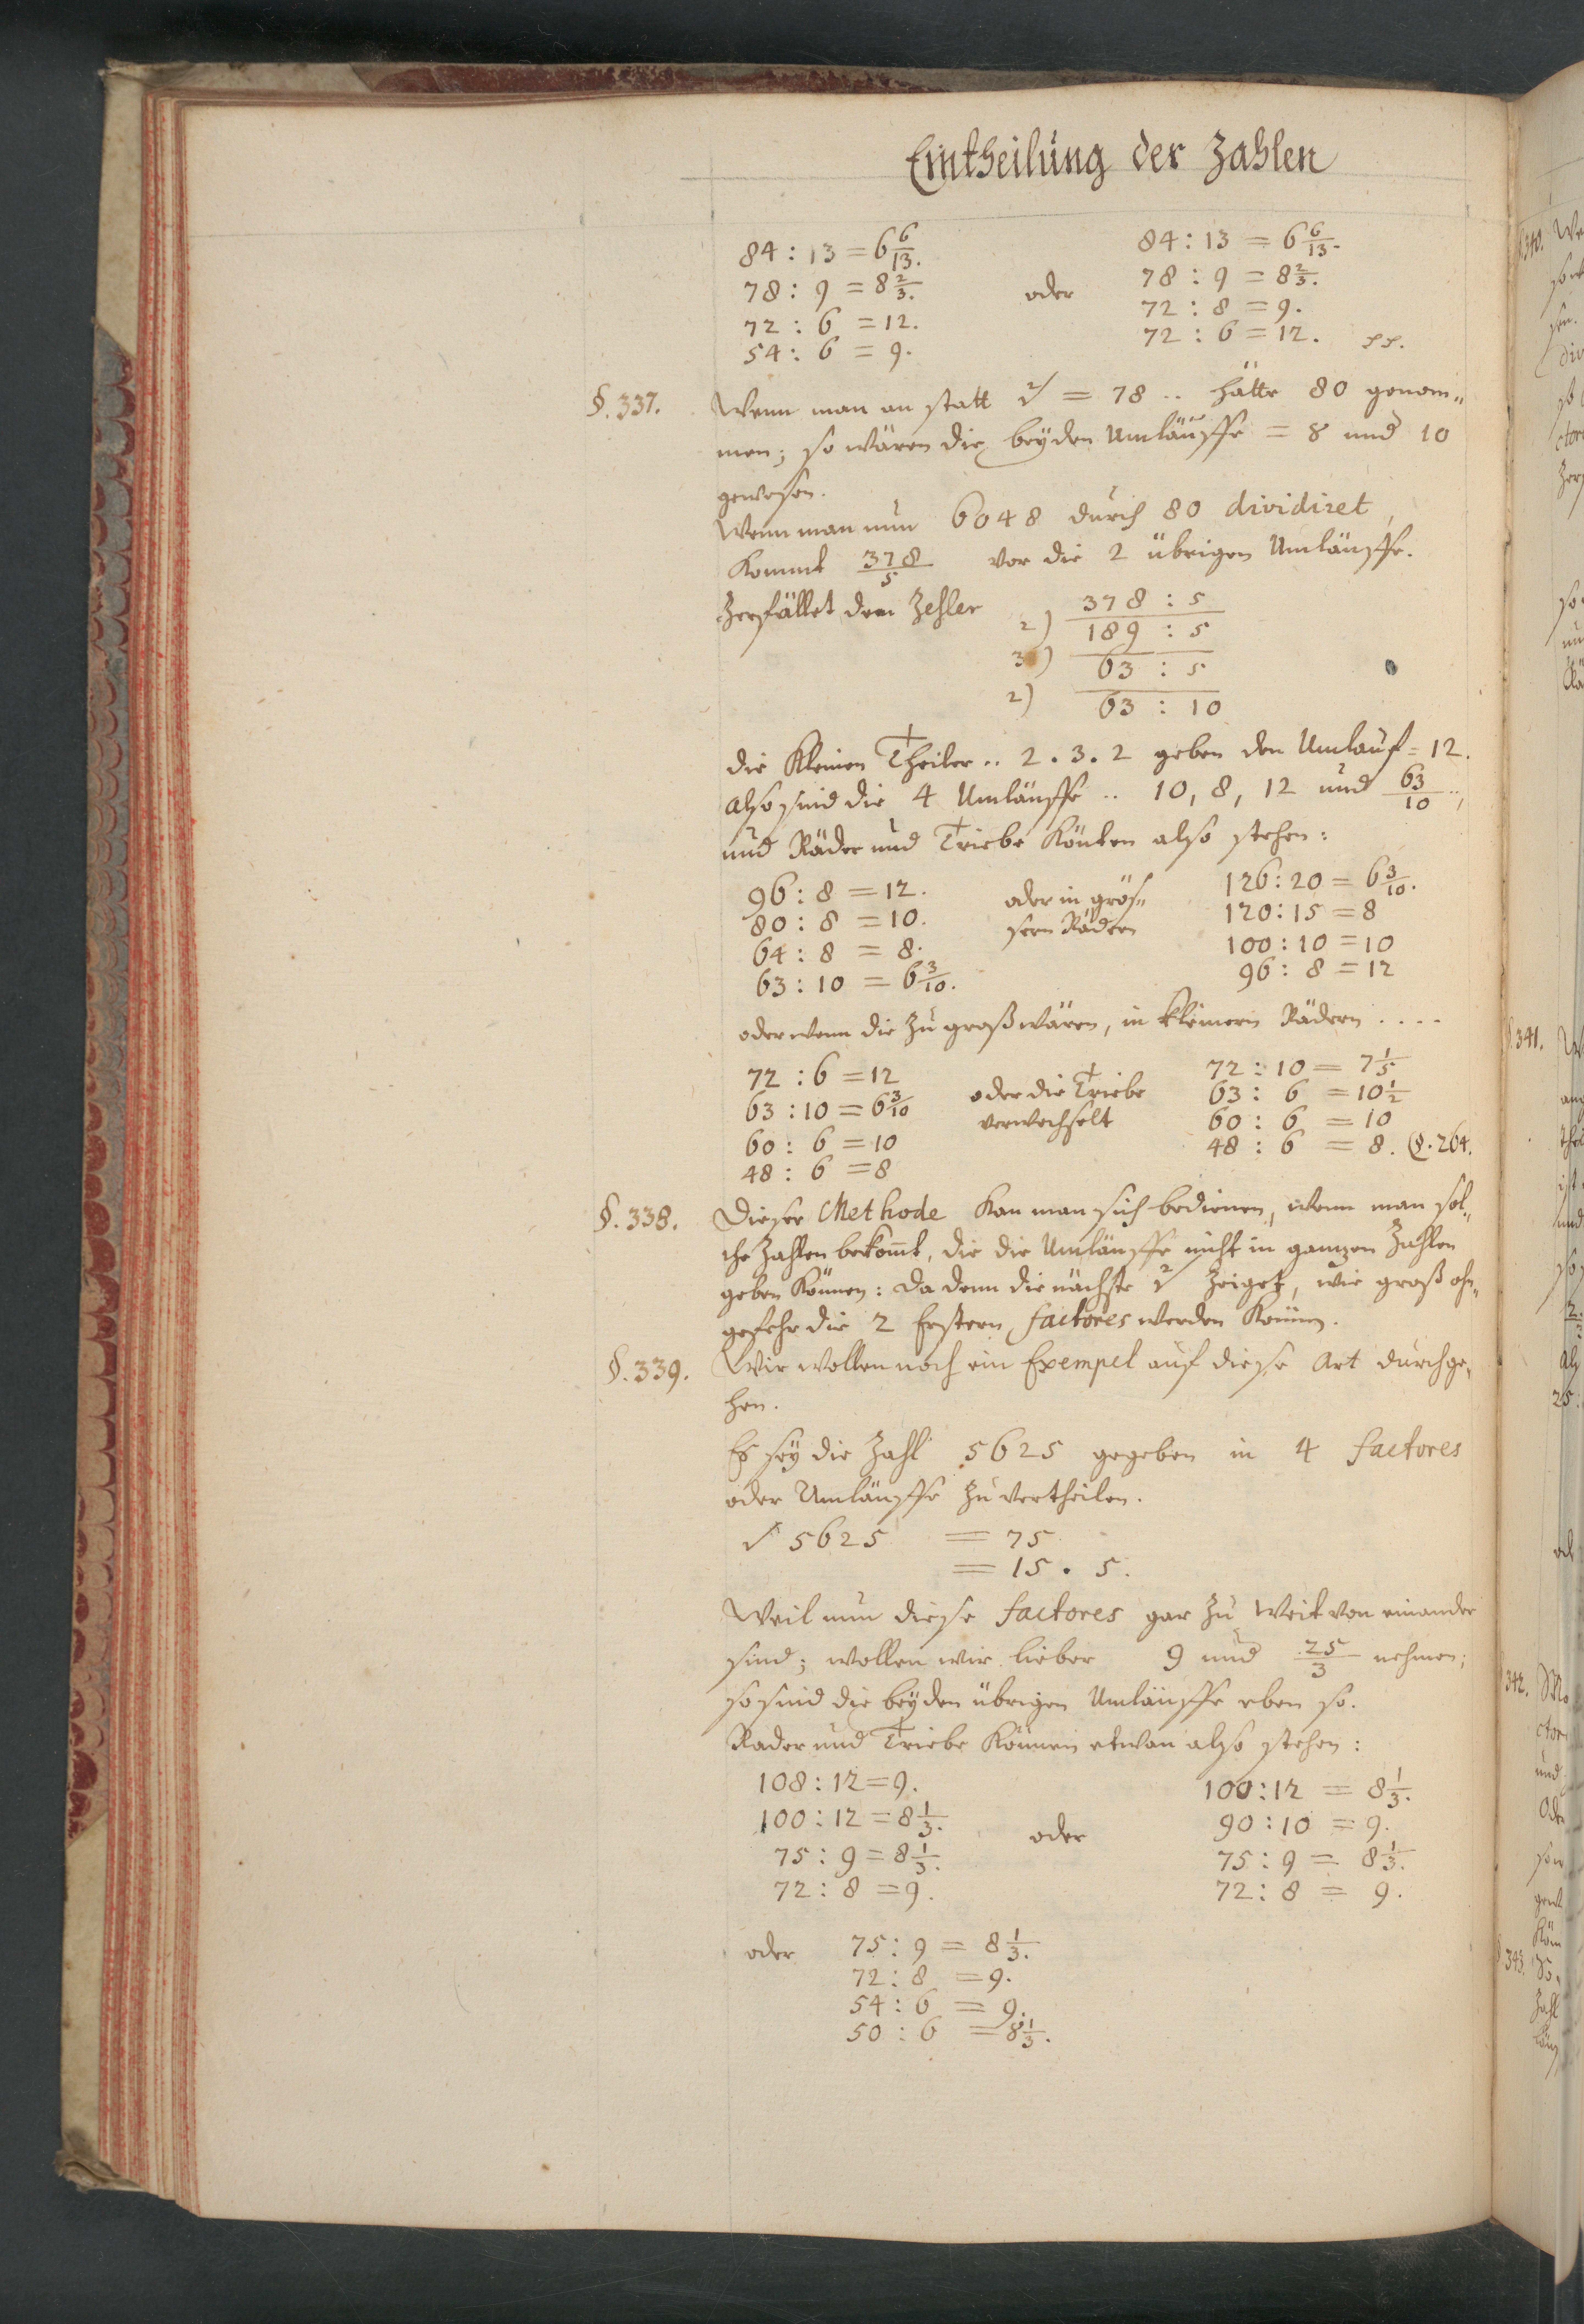 Eintheilung der Zahlen
84 : 13 = 6 6/13. 84 : 13 = 6 6/13.
78 : 9 = 8 2/3. oder 78 : 9 = 8 2/3.
72 : 6 = 12. 72 : 8 = 9.
54 : 6 = 9. 72 : 6 = 12.
§. 337. Wenn man an statt √² = 78 .. hätte 80 genom„
men; so wären die beyden Umläuffe = 8 und 10
gewesen.
Wenn man nun 6048 durch 80 dividiret,
kommt 378/5 vor die 2 übrigen Umläuffe.
Zerfället den Zehler 378 : 5
2) 189 : 5
3) 63 : 5
2) 63 : 10
die kleinen Theiler .. 2 . 3 . 2 geben den Umlauf = 12.
also sind die 4 Umläuffe .. 10, 8, 12 und 63/10 ..,
und Räder und Triebe könten also stehen:
96 : 8 = 12. oder in grös„ 126 : 20 = 6 3/10.
80 : 8 = 10. sern Rädern 120 : 15 = 8
64 : 8 = 8. 100 : 10 = 10
63 : 10 = 6 3/10. 96 : 8 = 12
oder wenn die zu groß wären, in kleinern Rädern . . . .
72 : 6 = 12 72 : 10 = 7 1/5
63 : 10 = 6 3/10 oder die Triebe 63 : 6 = 10 1/2
60 : 6 = 10 verwechselt 60 : 6 = 10
48 : 6 = 8 48 : 6 = 8. §. 264.
§. 338. Dieser Methode kan man sich bedienen, wenn man sol„
che Zahlen bekomt, die die Umläuffe nicht in ganzen Zahlen
geben können: da denn die nächste √² zeiget, wie groß ohn„
gefehr die 2 Erstern factores werden können.
§. 339. Wir wollen noch ein Exempel auf diese Art durchge„
hen.
Es sey die Zahl 5625 gegeben in 4 factores
oder Umläuffe zu vertheilen.
√ 5625 = 75
= 15 . 5.
Weil nun diese factores gar zu weit von einander
sind; wollen wir lieber 9 und 25/3 nehmen;
so sind die beyden übrigen Umläuffe eben so.
Räder und Triebe können etwan also stehen:
108 : 12 = 9. 100 : 12 = 8 1/3.
100 : 12 = 8 1/3. oder 90 : 10 = 9.
75 : 9 = 8 1/3. 75 : 9 = 8 1/3.
72 : 8 = 9. 72 : 8 = 9.
oder 75 : 9 = 8 1/3.
72 : 8 = 9.
54 : 6 = 9.
50 : 6 = 8 1/3.
§. 340.
§. 341.
342.
343.